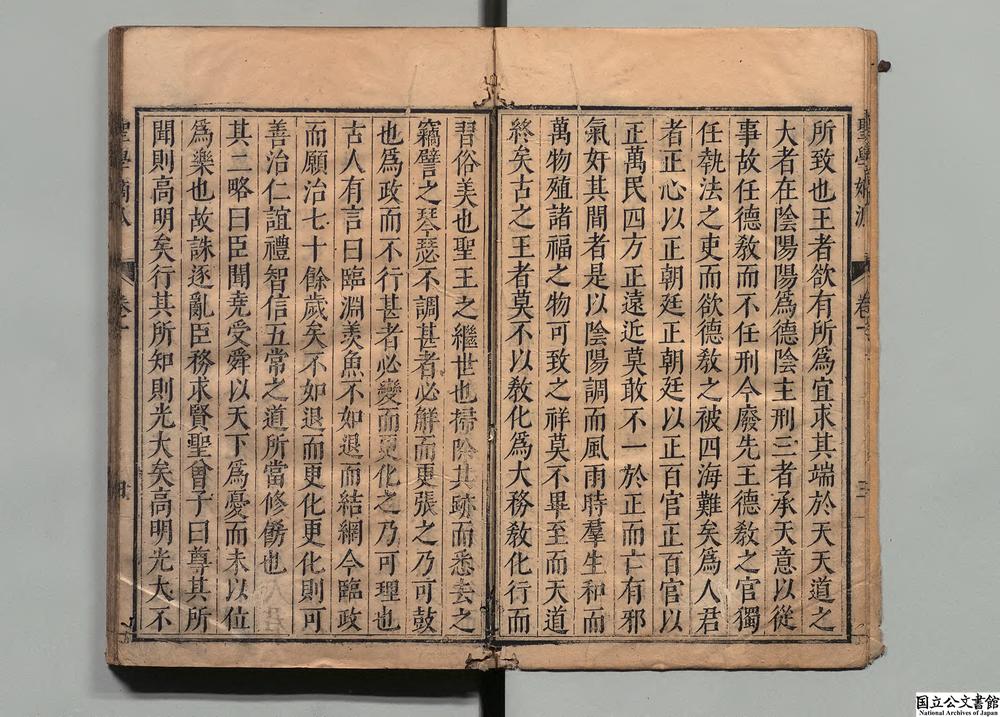 聖學嫡派
所致也王者欲有所爲宜求其端於天天道之
大者在陰陽陽爲德陰主刑三者承天意以從
事故任德教而不任刑今廢先王德教之官獨
任執法之吏而欲德教之被四海難矣爲人君
者正心以正朝廷正朝廷以正百官正百官以
正萬民四方正遠近莫敢不一於正而亡有邪
氣奸其間者是以陰陽調而風雨時羣生和而
萬物殖諸福之物可致之祥莫不畢至而天道
終矣古之王者莫不以教化爲大務教化行而
習俗美也聖王之繼世也掃除其跡而悉去之
竊譬之琴瑟不調甚者必觧而更張之乃可鼓
也爲政而不行甚者必變而更化之乃可理也
古人有言曰臨淵羨魚不如退而結網今臨政
而願治七十餘歲矣不如退而更化更化則可
善治仁誼禮智信五常之道所當修飭也
其二略曰臣聞堯受舜以天下爲憂而未以位
爲樂也故誅逐亂臣務求賢聖曾子曰尊其所
聞則高明矣行其所知則光大矣高明光大不
聖學嫡派
国立公文書館
National Archives of Japan